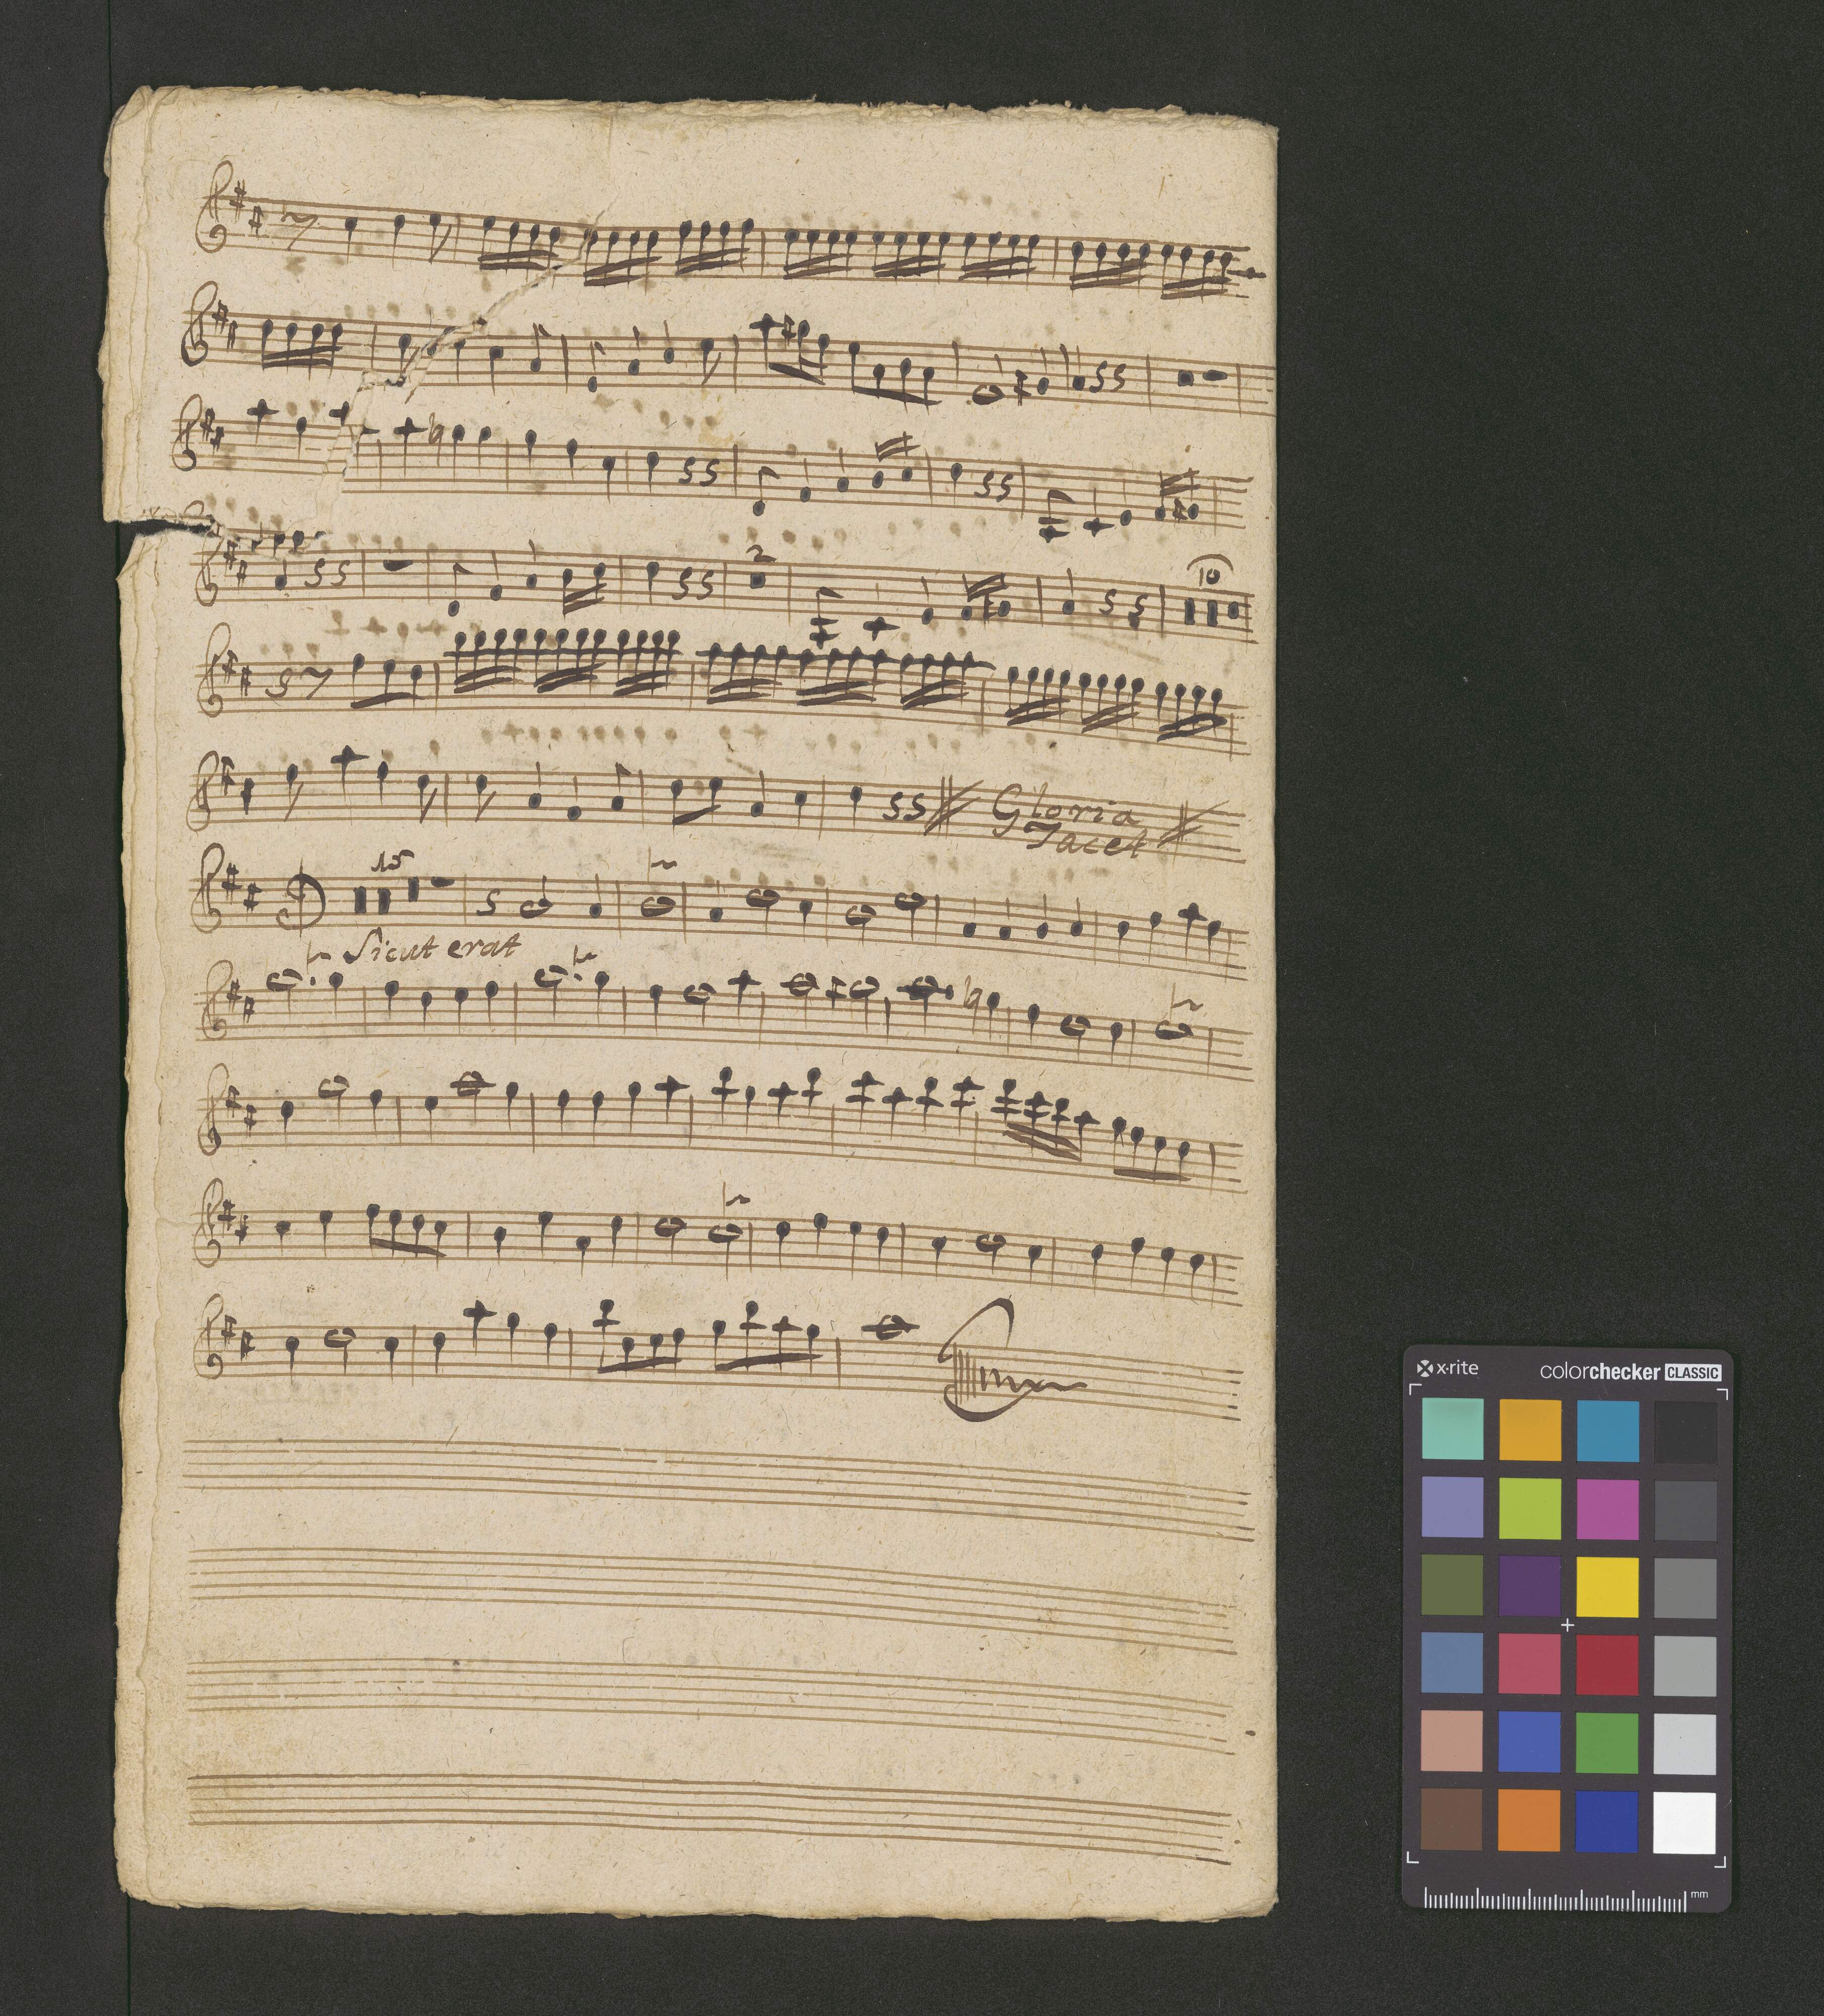 2
10
Gloria
Tacet
15
Sicut erat
x-rite
colorchecker CLASSIC
mm